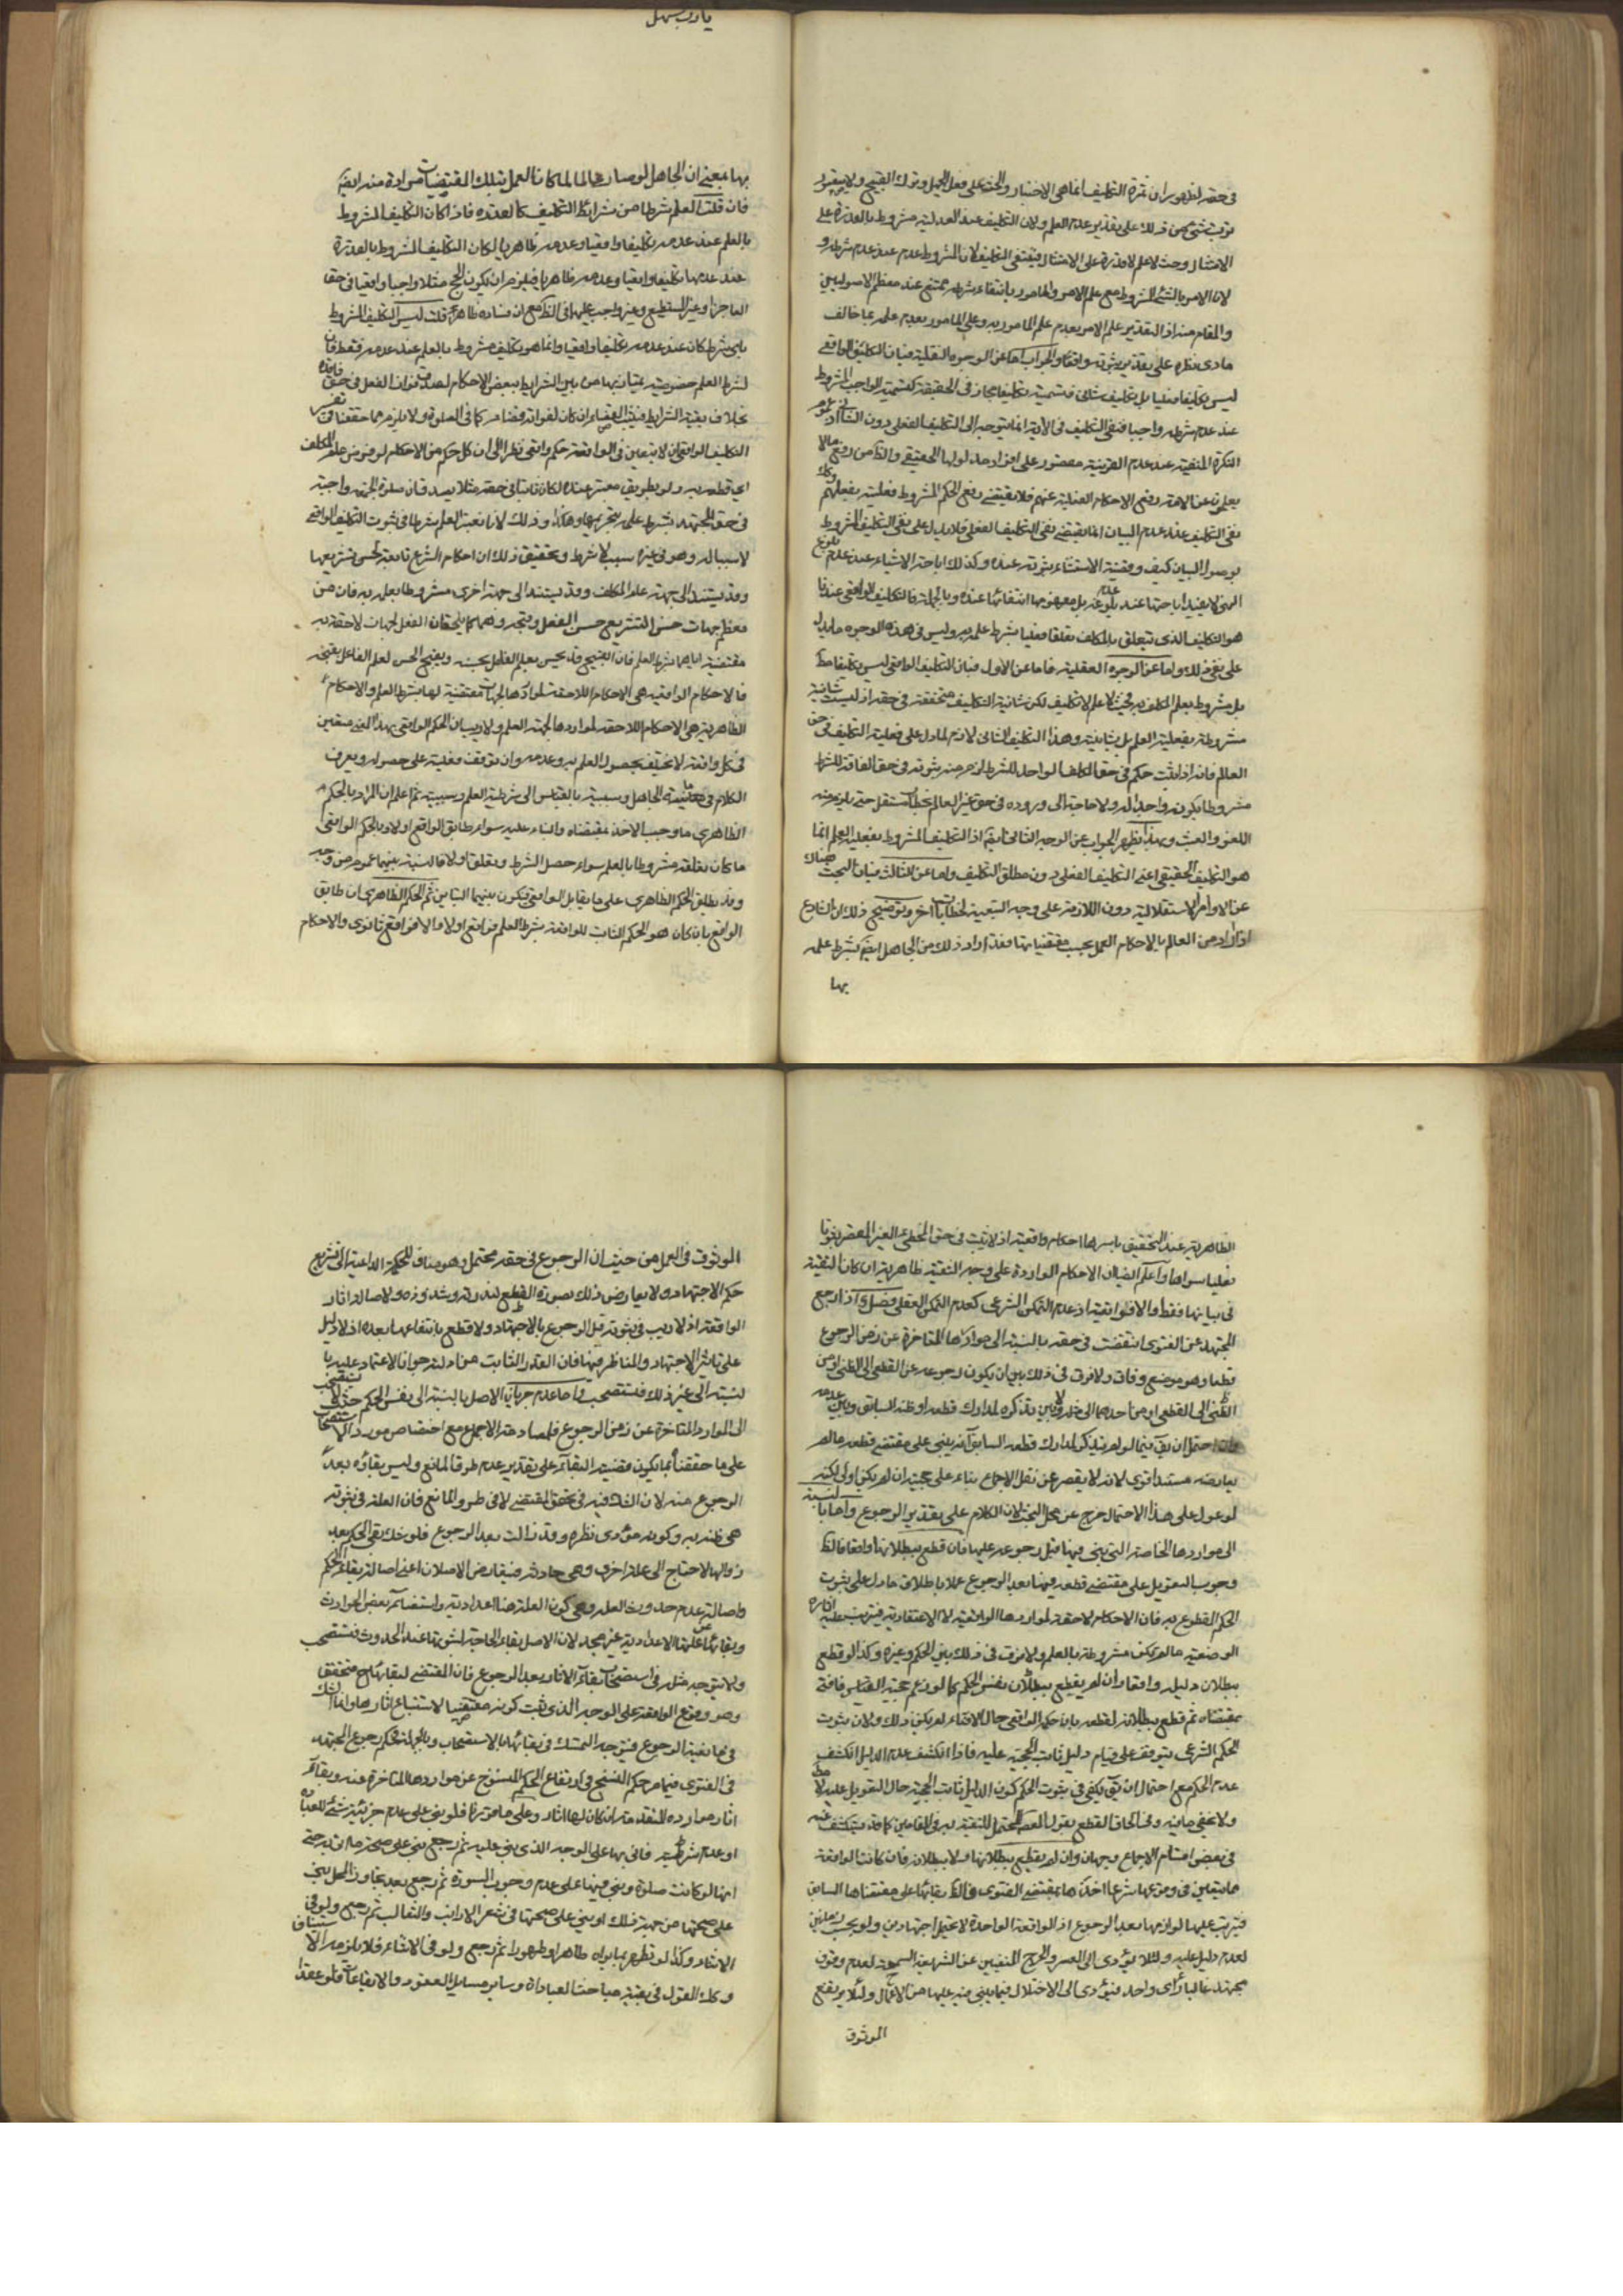 في حقه لظهور ان ثمرة التكليف انما هي الاختبار والحث على فعل الجميل وترك القبيح ولا يتصور
ترتب شئ من ذلك على تقدير عدم العلم ولان التكليف عند العدلية مشروط بالقدرة على
الامتثال وحيث لا علم لا قدرة على الامتثال فينتفي التكليف لان المشروط عدم عند عدم شرطه و
لان الامر بالشئ المشروط مع علم الامر والمامور بانتفاء شرطه ممتنع عند معظم الاصوليين
والمقام منه اذ التقدير علم الامر بعدم علم المامور به وعلم المامور بعدم علمه بما خالف
مادى نظره على تقدير ثبوته واقعا والجواب اما عن الوجوه النقلية فبان التكليف الواقعي
ليس تكليفا فعليا بل تكليف شانى فتسميته تكليفا مجاز في الحقيقة كتسمية الواجب المشروط
عند عدم شرطه واجبا فنفى التكليف في الاية انما يتوجه الى التكليف الفعلى دون الشانى اذ عموم
النكرة المنفية عند عدم القرينة مقصور على افراد مدلولها الحقيقي والظ من رفع مالا
يعلمون عن الامة رفع الاحكام الفعلية عنهم فلا يقتضي رفع الحكم المشروط فعليته بعلمهم وكك
نفى التكليف عند عدم البيان انما يقتضي نفى التكليف الفعلى فلا يدل على نفى التكليف المشروط
بوصول البيان كيف وقضية الاستثناء ثبوته عنده وكذلك اباحة الاشياء عند عدم بلوغ
النهى لا يفيد اباحتها عند بلوغه بل مفهومها انتفائها عنده وبالجملة فالتكليف الواقعى عندنا
هو التكليف الذى يتعلق بالمكلف تعلقا فعليا بشرط علمه به وليس في هذه الوجوه ما يدل
على نفى ذلك واما عن الوجوه العقلية فاما عن الاول فبان التكليف الواقعى ليس تكليفا مط
بل مشروط بعلم المكلف به فحيث لا علم لا تكليف لكن شانية التكليف متحققة في حقه اذ ليست شانية
مشروطة بفعلية العلم بل بشانيته وهذا التكليف الشانى لازم لما دل على فعلية التكليف في حق
العالم فانه اذا ثبت حكم في حق المكلف الواجد للشرط لزم منه ثبوته في حق الفاقد للشرط
مشروطا بكونه واجدا له ولا حاجة الى وروده في حق غير العالم بخطاب مستقل حتى يلزم منه
اللغو والعبث وبهذا يظهر الجواب عن الوجه الثانى ايضا اذ التكليف المشروط بفعلية العلم انما
هو التكليف الحقيقي اعنى التكليف الفعلى دون مطلق التكليف واما عن الثالث فبان البحث هناك
عن الاوامر الاستقلالية دون اللازمة على وجه التبعية لخطابات اخر وتوضيح ذلك ان الشارع
اذا اراد من العالم بالاحكام العمل بحسب مقتضياتها فقد اراد ذلك من الجاهل ايضا بشرط علمه
بها
يا رب سهل
بها بمعنى ان الجاهل لو صار عالما لما كان العمل بتلك المقتضيات مرادة منه ايضا
فان قلت العلم شرط من شرائط التكليف كالقدرة فاذا كان التكليف المشروط
بالعلم عند عدمه تكليفا واقعيا وعدمه ظاهريا لكان التكليف المشروط بالقدرة
عند عدمها تكليفا واقعيا وعدمه ظاهريا فيلزم ان يكون الحج مثلا واجبا واقعيا في حق
العاجز او غير المستطيع وغير واجب عليهما في الظ مع ان فساده ظاهر قلت ليس التكليف المشروط
باى شرط كان عند عدمه تكليفا واقعيا وانما هو تكليف مشروط بالعلم عند عدمه فقط فان
لشرط العلم خصوصية يمتاز بها من بين الشرايط ببعض الاحكام لصدق فوات الفعل في حق فاقده
بخلاف بقية الشرايط فيثبت القضاء ان كان لفواته قضاء كما في الصلوة ولا يلزم مما حققنا في تفسير
التكليف الواقعى ان لا يتعين في الواقعة حكم واقعى نظرا الى ان كل حكم من الاحكام لو فرض علم المكلف
اى قطعه به ولو بطريق معتبر عنده لكان ثابتا في حقه مثلا يصدق ان صلوة الجمعة واجبة
في حق المجتهد بشرط علمه بتحريمها وهكذا وذلك لانا نعتبر العلم شرطا في ثبوت التكليف الواقعي
لا سببا له وهو في غيره سبب لا شرط وتحقيق ذلك ان احكام الشرع تابعة لحسن تشريعها
وقد يستند الى جهة علم المكلف وقد يستند الى جهة اخرى مشروطا بعلمه به فان من
معظم جهات حسن التشريع حسن الفعل وقبحه وهما كما يلحقان الفعل لجهات لاحقة به
مقتضية اياهما بشرط العلم فان القبيح قد يحسن بعلم الفاعل بحسنه ويقبح الحسن لعلم الفاعل بقبحه
فالاحكام الواقعية هى الاحكام اللاحقة لمواردها لجهات مقتضية لها بشرط العلم والاحكام
الظاهرية هى الاحكام اللاحقة لمواردها لجهة العلم ولا ريب ان الحكم الواقعى بهذا المعنى متعين
في كل واقعة لا يختلف بحصول العلم به وعدمه وان توقف فعليته على حصوله ويعرف
الكلام في مانعية الجاهل وسببية بالقياس الى شرطية العلم وسببيته ثم اعلم ان المراد بالحكم
الظاهري ما وجب الاخذ بمقتضاه والبناء عليه سواء طابق الواقع او لا وبالحكم الواقعى
ما كان تعلقه مشروطا بالعلم سواء حصل الشرط وتعلق او لا فالنسبة بينهما عموم من وجه
وقد يطلق الحكم الظاهري على ما يقابل الواقعى فيكون بينهما التباين ثم الحكم الظاهرى ان طابق
الواقع بان كان هو الحكم الثابت للواقعة بشرط العلم فواقع اولى والا فواقع ثانوى والاحكام
الظاهرية عند التحقيق باسرها احكام واقعية اذ لا يثبت في حق المخطئ الغير المقصر
فعليا سواها واعلم ايضا ان الاحكام الواردة على وجه التقية ظاهرية ان كان التقية
في بيانها فقط والا فواقعية اذ عدم التمكن الشرعى كعدم التمكن العقلى فصل واذا رجع
المجتهد عن الفتوى انتقضت في حقه بالنسبة الى مواردها المتاخرة عن زمن الرجوع
قطعا وهو موضع وفاق ولا فرق في ذلك بين ان يكون رجوعه عن القطعى الى الظنى او من
الظنى الى القطعى او من احدهما الى خلافه ولا بين تذكره لمدارك قطعه او ظنه السابق وبين عدمه
وان احتمل ان يق فيما لو لم يتذكر لمدارك قطعه السابق انه يبنى على مقتضى قطعه ما لم
يعارضه مستند اقوى لانه لا يقصر عن نقل الاجماع بناء على حجيته ان لم يكن اولى لكنه
لو عول على هذا الاحتمال خرج عن محل البحث لان الكلام على تقدير الرجوع واما بالنسبة
الى مواردها الخاصة التى بنى فيها قبل رجوعه عليها فان قطع ببطلانها واقعا فالظ
وجوب التعويل على مقتضى قطعه فيها بعد الرجوع عملا باطلاق ما دل على ثبوت
الحكم المقطوع به فان الاحكام لاحقة لمواردها الواقعية لا الاعتقادية فيترتب عليه اثاره
الوضعية ما لم تكن مشروطة بالعلم ولا فرق في ذلك بين الحكم وغيره وكذا لو قطع
ببطلان دليله واقعا وان لم يقطع ببطلان نفس الحكم كما لو زعم حجية القياس فافتى
بمقتضاه ثم قطع ببطلانه لقطعه بان حكمه الواقعى حال الافتاء لم يكن ذلك ولان ثبوت
الحكم الشرعى يتوقف على قيام دليل ثابت الحجية عليه فاذا انكشف عدم الدليل انكشف
عدم الحكم مع احتمال ان يق يكفى في ثبوت الحكم كون الدليل ثابت الحجية حال التعويل عليه لا مط
ولا يخفى ما فيه وفى الحاق القطع بقول المعصوم المحتمل للتقية به في المقامين كما قد يتكشف عنه
في بعض اقسام الاجماع وجهان وان لم يقطع ببطلانها ولا ببطلانه فان كانت الواقعة
مما يتعين في وقوعها شرعا اخذها بمقتضى الفتوى فالظ بقائها على مقتضاها السابق
فيترتب عليها لوازمها بعد الرجوع اذ الواقعة الواحدة لا تحتمل اجتهادين ولو بحسب زمانين
لعدم دليل عليه ولئلا يؤدى الى العسر والحرج المنفيين عن الشريعة السمحة لعدم وقوف
مجتهد غالبا براى واحد فيؤدى الى الاختلال فيما يبنى فيه عليها من الاعمال ولئلا يرتفع
الموثوق
الموثوق في العمل من حيث ان الرجوع في حقه محتمل وهو مناف للحكمة الداعية الى تشريع
حكم الاجتهاد ولا يعارض ذلك بصورة القطع لندرته وشذوذه ولاصالة اثار
الواقعة اذ لا ريب في ثبوته قبل الرجوع بالاجتهاد ولا قطع بانتفاعها بعده اذ لا دليل
على تاثير الاجتهاد المتاخر فيها فان القدر الثابت من ادلته جواز الاعتماد عليه با
لنسبة الى غير ذلك فتستصحب واما عدم جريان الاصل بالنسبة الى نفس الحكم حيث لا يستصحب
الى الموارد المتاخرة عن زمن الرجوع فلمصادمة الاجماع مع اختصاص مورد الاستصحاب
على ما حققنا بما يكون قضية البقاء على تقدير عدم طرو المانع وليس بقاؤه بعد
الرجوع منه لان الشك فيه في تحقق المقتضى لا في طرو المانع فان العلة في ثبوته
هى ظنه به وكونه مؤدى نظره وقد زالت بعد الرجوع فلو بقى الحكم بعد
زوالها لاحتاج الى علة اخرى وهى حادثة فيتعارض الاصلان اعنى اصالة بقاء الحكم
واصالة عدم حدوث العلة وكون العلة هنا اعدادية واستغناء بعض الحوادث
وبقائها عن علتها الاعدادية غير مجد لان الاصل بقاء الحاجة لثبوتها عند الحدوث فتستصحب
ولا يتوجه مثله في استصحاب بقاء الاثار بعد الرجوع فان المقتضى لبقائها ح متحقق
وهو وقوع الواقعة على الوجه الذى ثبت كونه مقتضيا لاستتباع اثارها وانما الشك
في مانعية الرجوع فيتوجه التمسك في بقائها بالاستصحاب وبالجملة فحكم رجوع المجتهد
في الفتوى فيما مر حكم النسخ في ارتفاع الحكم المنسوخ عن موارده المتاخرة عنه وبقاء
اثار موارده المتقدمة ان كان لها اثار وعلى ما حررنا فلو بنى على عدم جزئية شئ للعبادة
او عدم شرطيته فاتى بها على الوجه الذى بنى عليه ثم رجع بنى على صحة ما اتى به حتى
انها لو كانت صلوة وبنى فيها على عدم وجوب السورة ثم رجع بعد تجاوز المحل بنى
على صحتها من جهة ذلك او بنى على صحتها في شعر الارانب والثعالب ثم رجع ولو في
الاثناء وكذا لو تطهر بما يراه طاهرا او طهورا ثم رجع ولو في الاثناء فلا يلزمه الاستيناف
وكذا القول في بقية مباحث العبادات وساير مسايل العقود والايقاعات فلو عقد